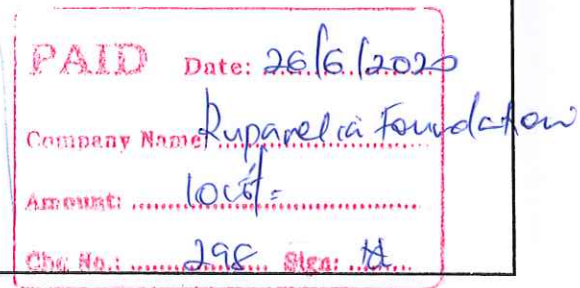 PAID Date: 26/6/2020
Company Name Ruparelia Foundation
Amount:
Chq No.: 298 Sign: